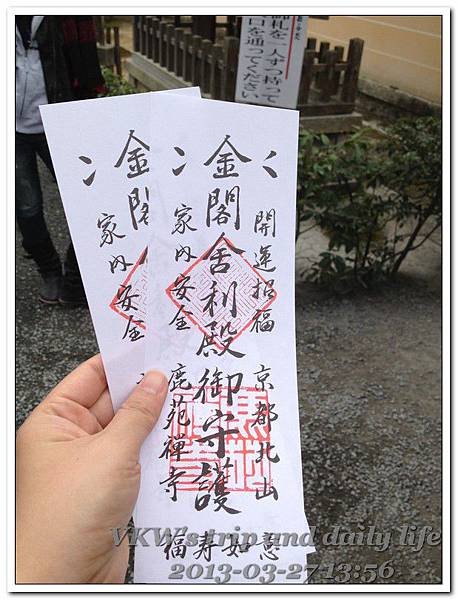 御札を一人ずつ持って
口を通ってください
開運招福 京都北山
金閣舍利殿御守護
家内安全 鹿苑禪寺
福寿如意
金閣
家内安全
VKW's trip and daily life
2013-03-27 13:56